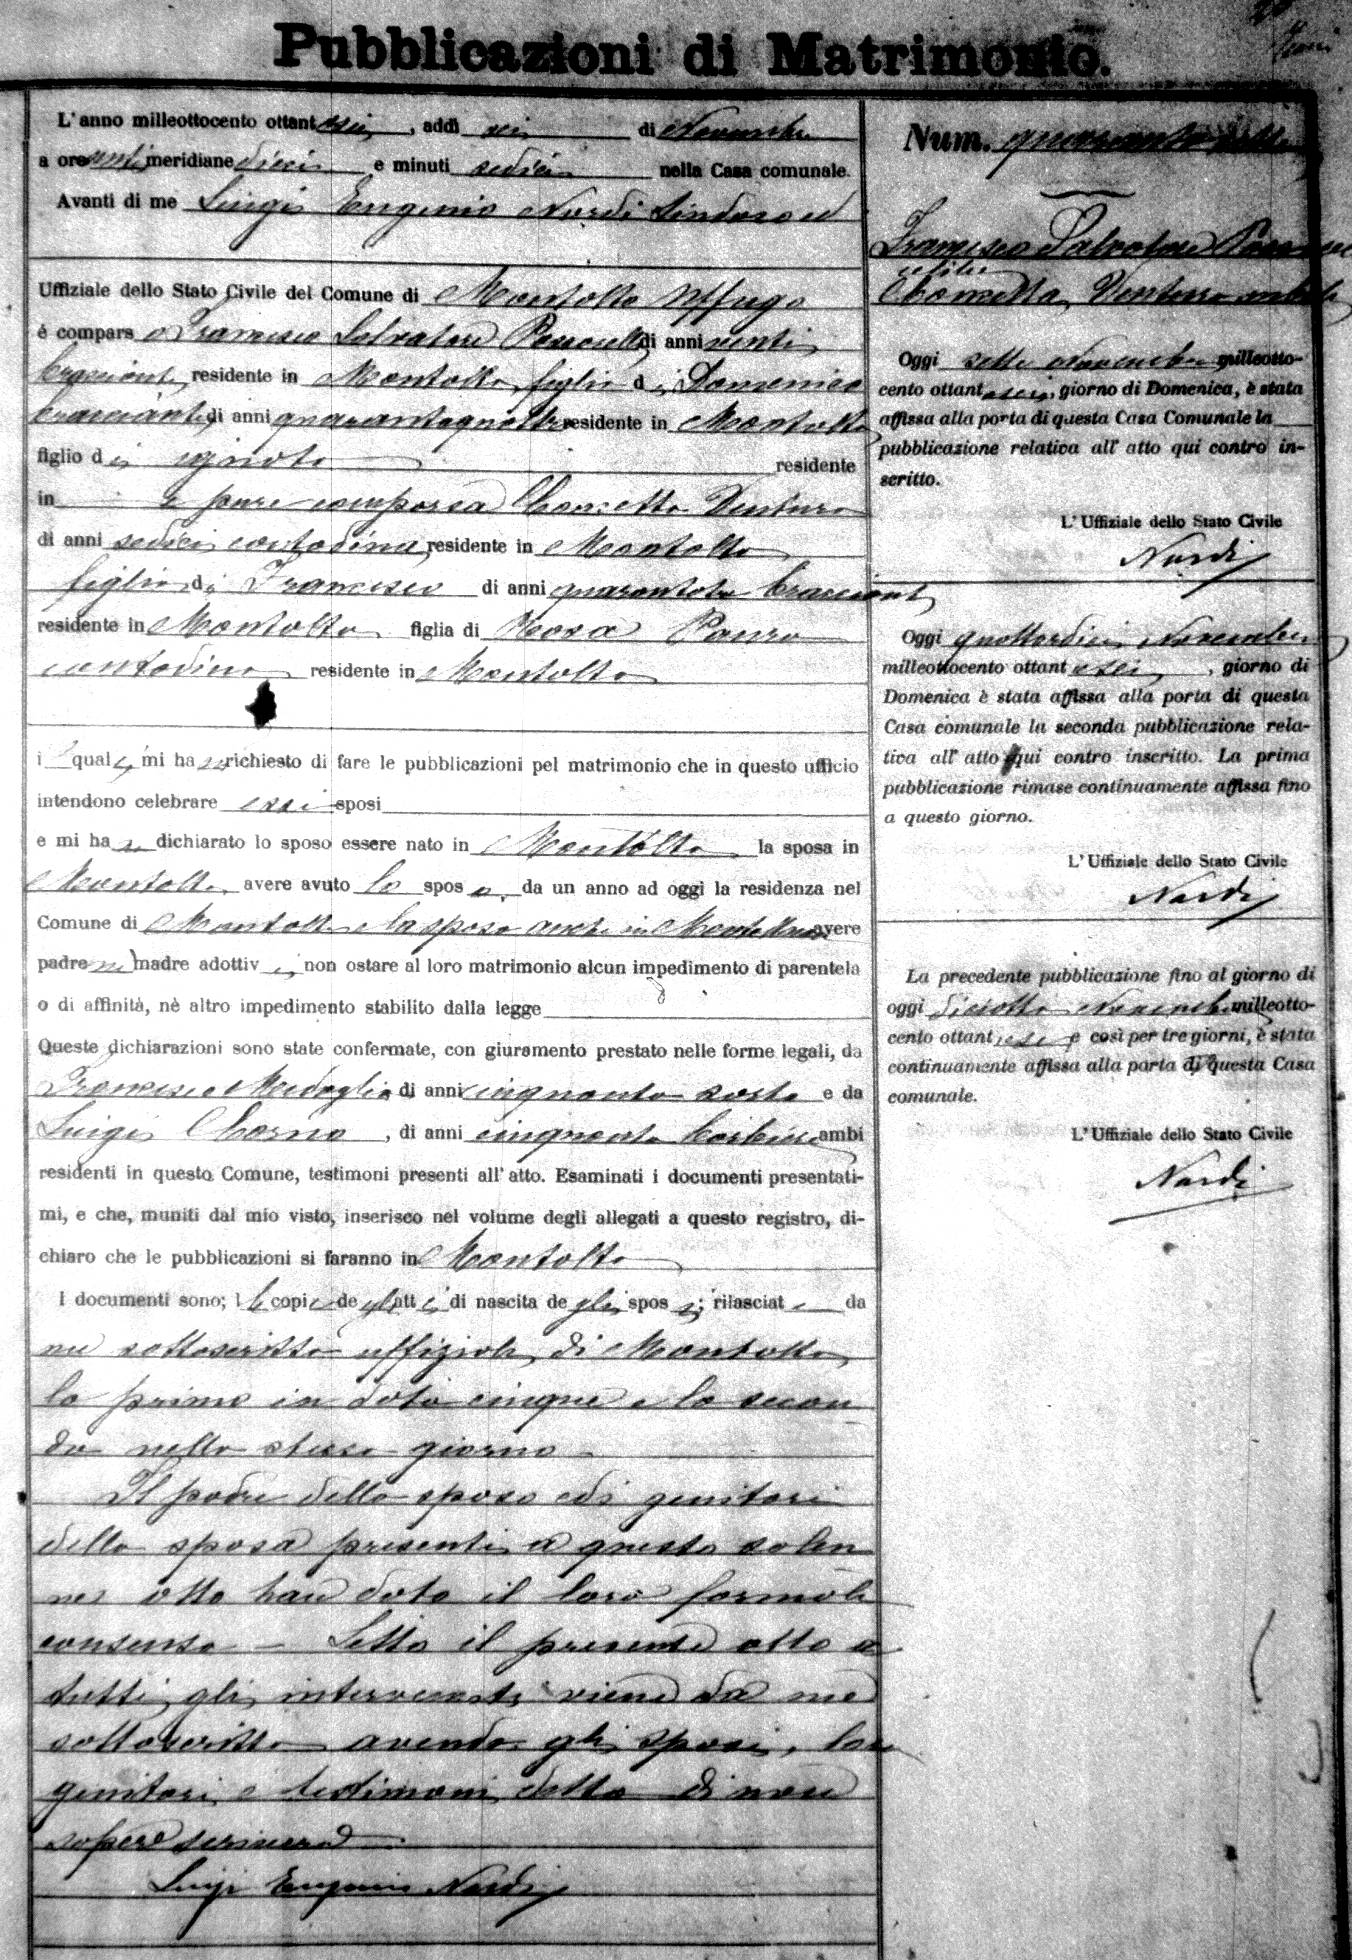 Pubblicazioni di Matrimonio.
L'anno milleottocento ottantasei, addì sei di Novembre
a ore antimeridiane dieci e minuti sedici nella Casa comunale.
Avanti di me Luigi Eugenio Nardi Sindaco ed
Uffiziale dello Stato Civile del Comune di Montalto Uffugo
è comparso Francesco Salvatore di anni venti
bracciante, residente in Montalto, figlio di Domenico
bracciante, di anni quarantaquattro residente in Montalto
figlio di ignota residente
in e pure comparsa Concetta Ventura
di anni sedici contadina, residente in Montalto
figlia di Francesco di anni quarantatre bracciante
residente in Montalto figlia di Rosa
contadina residente in Montalto
i quali mi hanno richiesto di fare le pubblicazioni pel matrimonio che in questo ufficio
intendono celebrare essi sposi
e mi hanno dichiarato lo sposo essere nato in Montalto, la sposa in
Montalto, avere avuto lo sposo, da un anno ad oggi la residenza nel
Comune di Montalto e la sposa anche in Montalto avere
padre nè madre adottivi, non ostare al loro matrimonio alcun impedimento di parentela
o di affinità, nè altro impedimento stabilito dalla legge
Queste dichiarazioni sono state confermate, con giuramento prestato nelle forme legali, da
Francesco Medaglia di anni cinquanta sarto e da
Luigi, di anni cinquanta barbiere ambi
residenti in questo Comune, testimoni presenti all'atto. Esaminati i documenti presentati-
mi, e che, muniti dal mio visto, inserisco nel volume degli allegati a questo registro, di-
chiaro che le pubblicazioni si faranno in Montalto
I documenti sono; le copie degli atti di nascita degli sposi; rilasciate da
me sottoscritto uffiziale di Montalto,
la prima in data cinque e la secon
da nello stesso giorno
Il padre dello sposo ed i genitori
della sposa presenti a questo solen
ne atto han dato il loro formale
consenso - Letto il presente atto a
tutti gli intervenuti viene da me
sottoscritto avendo gli sposi, loro
genitori e testimoni detto di non
sapere scrivere
Luigi Eugenio Nardi
Num. quarantasette
Francesco Salvatore
celibe
Concetta Ventura nubile
Oggi sette Novembre milleotto-
cento ottantasei, giorno di Domenica, è stata
affissa alla porta di questa Casa Comunale la
pubblicazione relativa all'atto qui contro in-
scritto.
L'Uffiziale dello Stato Civile
Nardi
Oggi quattordici Novembre
milleottocento ottantasei, giorno di
Domenica è stata affissa alla porta di questa
Casa comunale la seconda pubblicazione rela-
tiva all'atto qui contro inscritto. La prima
pubblicazione rimase continuamente affissa fino
a questo giorno.
L'Uffiziale dello Stato Civile
Nardi
La precedente pubblicazione fino al giorno di
oggi diciotto Novembre milleotto-
cento ottantasei e così per tre giorni, è stata
continuamente affissa alla porta di questa Casa
comunale.
L'Uffiziale dello Stato Civile
Nardi